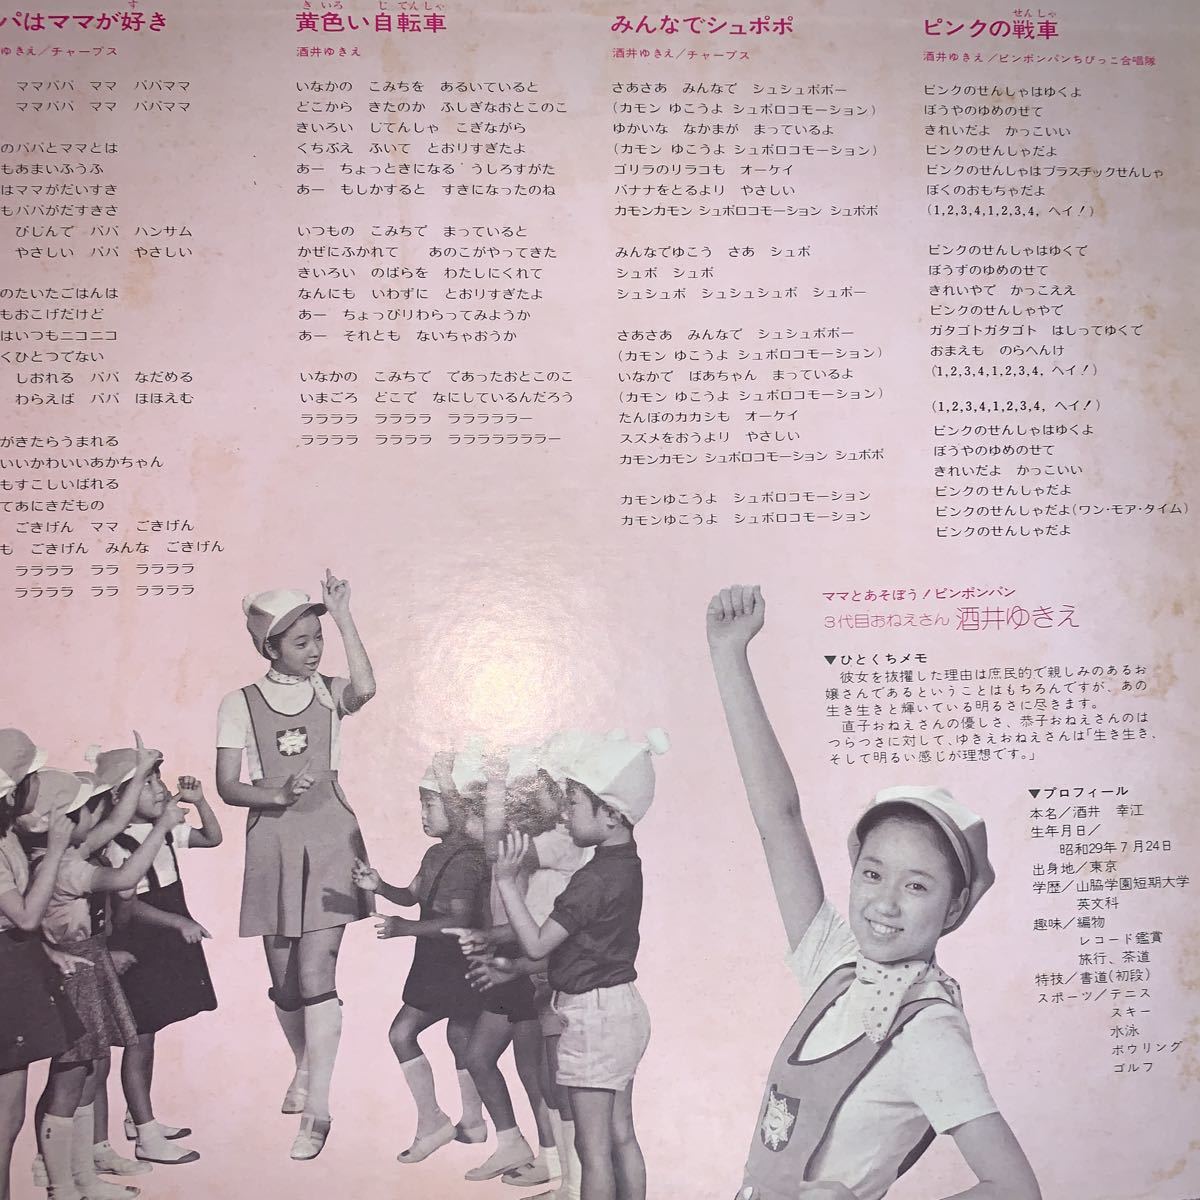 パはママが好き
す
ゆきえ／チャープス
ママパパ ママ パパママ
ママパパ ママ パパママ
のパパとママとは
もあまいふうふ
はママがだいすき
もパパがだすきさ
びじんで パパ ハンサム
やさしい パパ やさしい
のたいたごはんは
もおこげだけど
はいつもニコニコ
くひとつでない
しおれる パパ なだめる
わらえば パパ ほほえむ
がきたらうまれる
いいかわいいあかちゃん
もすこしいばれる
てあにきだもの
ごきげん ママ ごきげん
も ごきげん みんな ごきげん
ララララ ララ ララララ
ララララ ララ ララララ
き いろ じ てんしゃ
黄色い自転車
酒井ゆきえ
いなかの こみちを あるいていると
どこから きたのか ふしぎなおとこのこ
きいろい じてんしゃ こぎながら
くちぶえ ふいて とおりすぎたよ
あー ちょっときになる うしろすがた
あー もしかすると すきになったのね
いつもの こみちで まっていると
かぜにふかれて あのこがやってきた
きいろい のばらを わたしにくれて
なんにも いわずに とおりすぎたよ
あー ちょっぴりわらってみようか
あー それとも ないちゃおうか
いなかの こみちで であったおとこのこ
いまごろ どこで なにしているんだろう
ララララ ララララ ラララララー
ララララ ララララ ラララララララー
みんなでシュポポ
酒井ゆきえ／チャープス
さあさあ みんなで シュシュポポー
(カモン ゆこうよ シュポロコモーション)
ゆかいな なかまが まっているよ
(カモン ゆこうよ シュポロコモーション)
ゴリラのリラコも オーケイ
バナナをとるより やさしい
カモンカモン シュポロコモーション シュポポ
みんなでゆこう さあ シュポ
シュポ シュポ
シュシュポ シュシュシュポ シュポー
さあさあ みんなで シュシュポポー
(カモン ゆこうよ シュポロコモーション)
いなかで ばあちゃん まっているよ
(カモン ゆこうよ シュポロコモーション)
たんぼのカカシも オーケイ
スズメをおうより やさしい
カモンカモン シュポロコモーション シュポポ
カモンゆこうよ シュポロコモーション
カモンゆこうよ シュポロコモーション
せんしゃ
ピンクの戦車
酒井ゆきえ／ピンポンパンちびっこ合唱隊
ピンクのせんしゃはゆくよ
ぼうやのゆめのせて
きれいだよ かっこいい
ピンクのせんしゃだよ
ピンクのせんしゃはプラスチックせんしゃ
ぼくのおもちゃだよ
(1,2,3,4,1,2,3,4, ヘイ！)
ピンクのせんしゃはゆくで
ぼうずのゆめのせて
きれいやで かっこええ
ピンクのせんしゃやで
ガタゴトガタゴト はしってゆくで
おまえも のらへんけ
(1,2,3,4,1,2,3,4, ヘイ！)
(1,2,3,4,1,2,3,4, ヘイ！)
ピンクのせんしゃはゆくよ
ぼうやのゆめのせて
きれいだよ かっこいい
ピンクのせんしゃだよ
ピンクのせんしゃだよ(ワン・モア・タイム)
ピンクのせんしゃだよ
ママとあそぼう！ピンポンパン
3代目おねえさん 酒井ゆきえ
▼ひとくちメモ
彼女を抜擢した理由は庶民的で親しみのあるお
嬢さんであるということはもちろんですが、あの
生き生きと輝いている明るさに尽きます。
直子おねえさんの優しさ、恭子おねえさんのは
つらつさに対して、ゆきえおねえさんは「生き生き、
そして明るい感じが理想です。」
▼プロフィール
本名／酒井 幸江
生年月日／
昭和29年7月24日
出身地／東京
学歴／山脇学園短期大学
英文科
趣味／編物
レコード鑑賞
旅行、茶道
特技／書道(初段)
スポーツ／テニス
スキー
水泳
ボウリング
ゴルフ